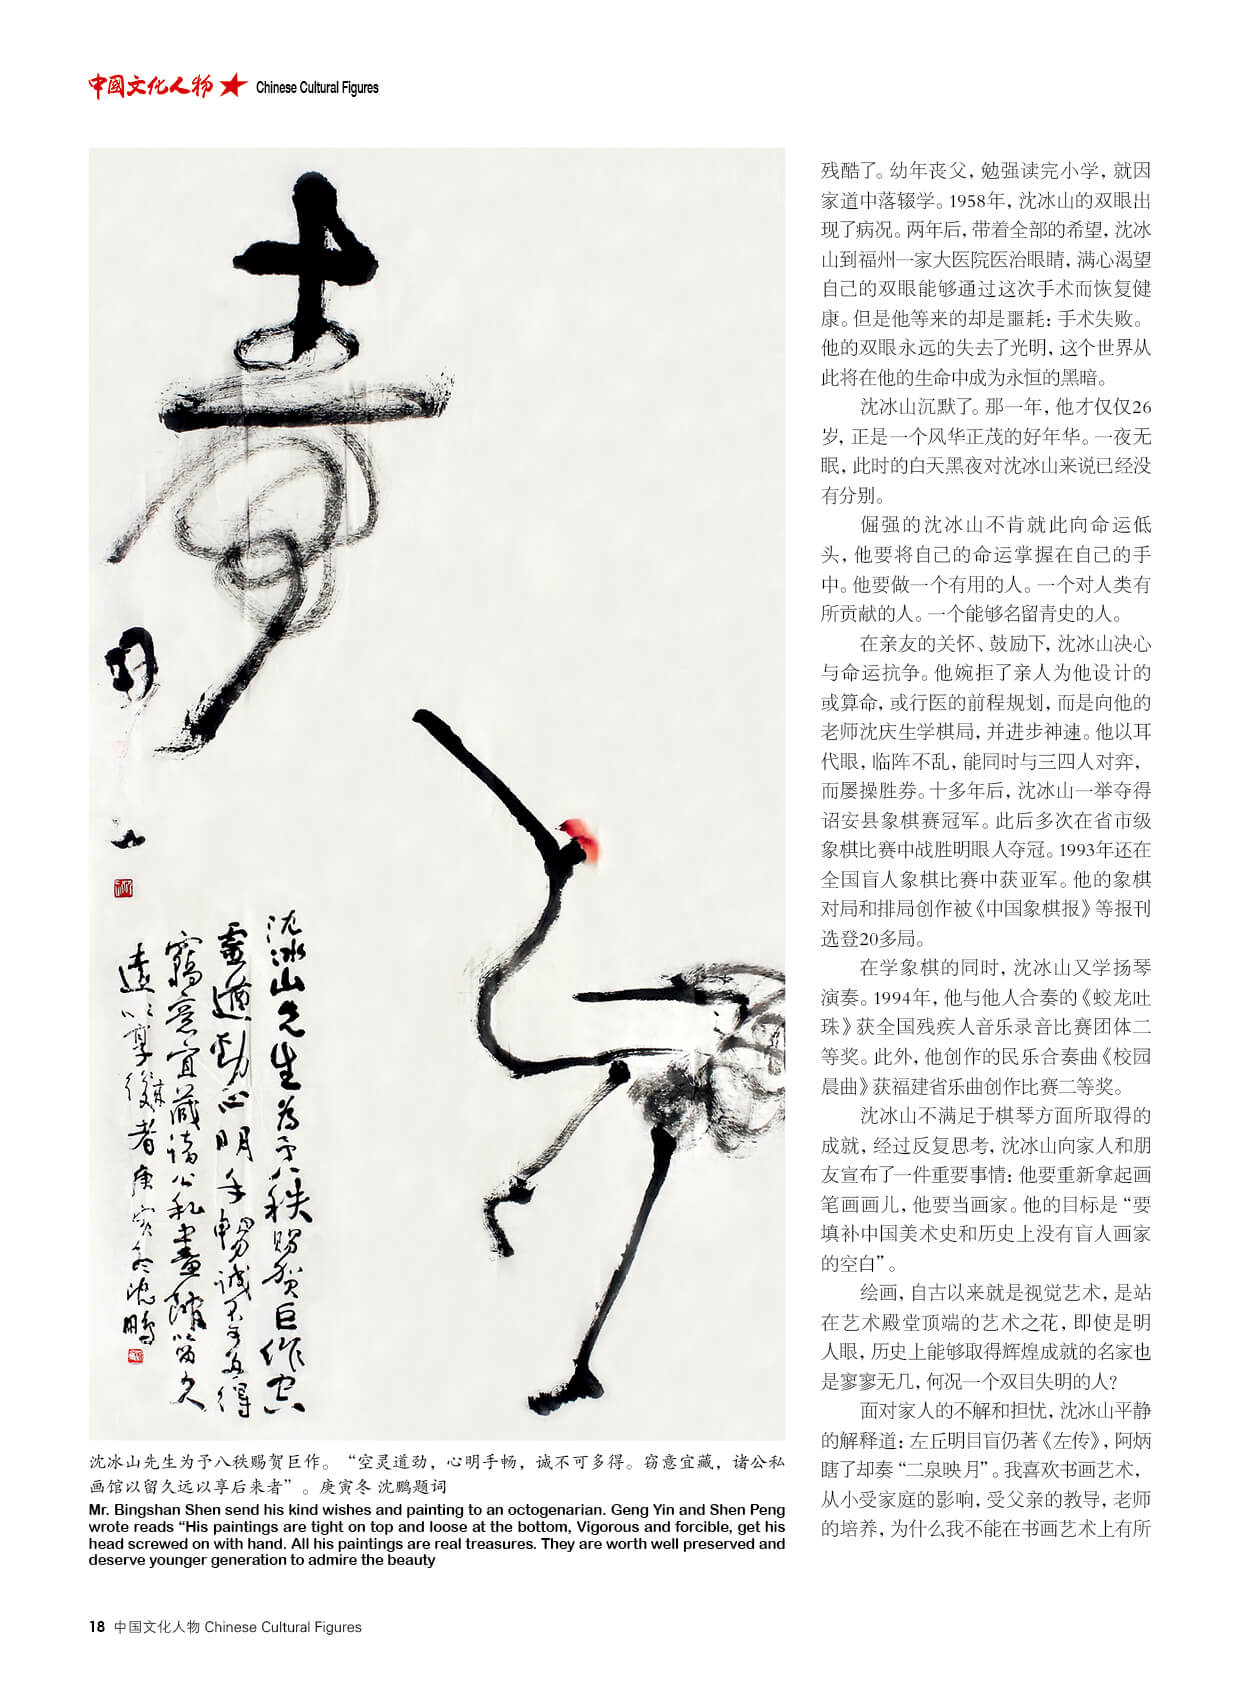 中國文化人物 Chinese Cultural Figures
沈冰山先生为予八秩赐贺巨作空
灵遒劲心明手畅诚不可多得
窃意宜藏诸公私画馆以留久
远以享后来者庚寅冬沈鹏
沈冰山先生为予八秩赐贺巨作。“空灵道劲，心明手畅，诚不可多得。窃意宜藏，诸公私
画馆以留久远以享后来者”。庚寅冬 沈鹏题词
Mr. Bingshan Shen send his kind wishes and painting to an octogenarian. Geng Yin and Shen Peng
wrote reads “His paintings are tight on top and loose at the bottom, Vigorous and forcible, get his
head screwed on with hand. All his paintings are real treasures. They are worth well preserved and
deserve younger generation to admire the beauty
残酷了。幼年丧父，勉强读完小学，就因
家道中落辍学。1958年，沈冰山的双眼出
现了病况。两年后，带着全部的希望，沈冰
山到福州一家大医院医治眼睛，满心渴望
自己的双眼能够通过这次手术而恢复健
康。但是他等来的却是噩耗：手术失败。
他的双眼永远的失去了光明，这个世界从
此将在他的生命中成为永恒的黑暗。
沈冰山沉默了。那一年，他才仅仅26
岁，正是一个风华正茂的好年华。一夜无
眠，此时的白天黑夜对沈冰山来说已经没
有分别。
倔强的沈冰山不肯就此向命运低
头，他要将自己的命运掌握在自己的手
中。他要做一个有用的人。一个对人类有
所贡献的人。一个能够名留青史的人。
在亲友的关怀、鼓励下，沈冰山决心
与命运抗争。他婉拒了亲人为他设计的
或算命，或行医的前程规划，而是向他的
老师沈庆生学棋局，并进步神速。他以耳
代眼，临阵不乱，能同时与三四人对弈，
而屡操胜券。十多年后，沈冰山一举夺得
诏安县象棋赛冠军。此后多次在省市级
象棋比赛中战胜明眼人夺冠。1993年还在
全国盲人象棋比赛中获亚军。他的象棋
对局和排局创作被《中国象棋报》等报刊
选登20多局。
在学象棋的同时，沈冰山又学扬琴
演奏。1994年，他与他人合奏的《蛟龙吐
珠》获全国残疾人音乐录音比赛团体二
等奖。此外，他创作的民乐合奏曲《校园
晨曲》获福建省乐曲创作比赛二等奖。
沈冰山不满足于棋琴方面所取得的
成就，经过反复思考，沈冰山向家人和朋
友宣布了一件重要事情：他要重新拿起画
笔画画儿，他要当画家。他的目标是“要
填补中国美术史和历史上没有盲人画家
的空白”。
绘画，自古以来就是视觉艺术，是站
在艺术殿堂顶端的艺术之花，即使是明
人眼，历史上能够取得辉煌成就的名家也
是寥寥无几，何况一个双目失明的人？
面对家人的不解和担忧，沈冰山平静
的解释道：左丘明目盲仍著《左传》，阿炳
瞎了却奏“二泉映月”。我喜欢书画艺术，
从小受家庭的影响，受父亲的教导，老师
的培养，为什么我不能在书画艺术上有所
18 中国文化人物 Chinese Cultural Figures